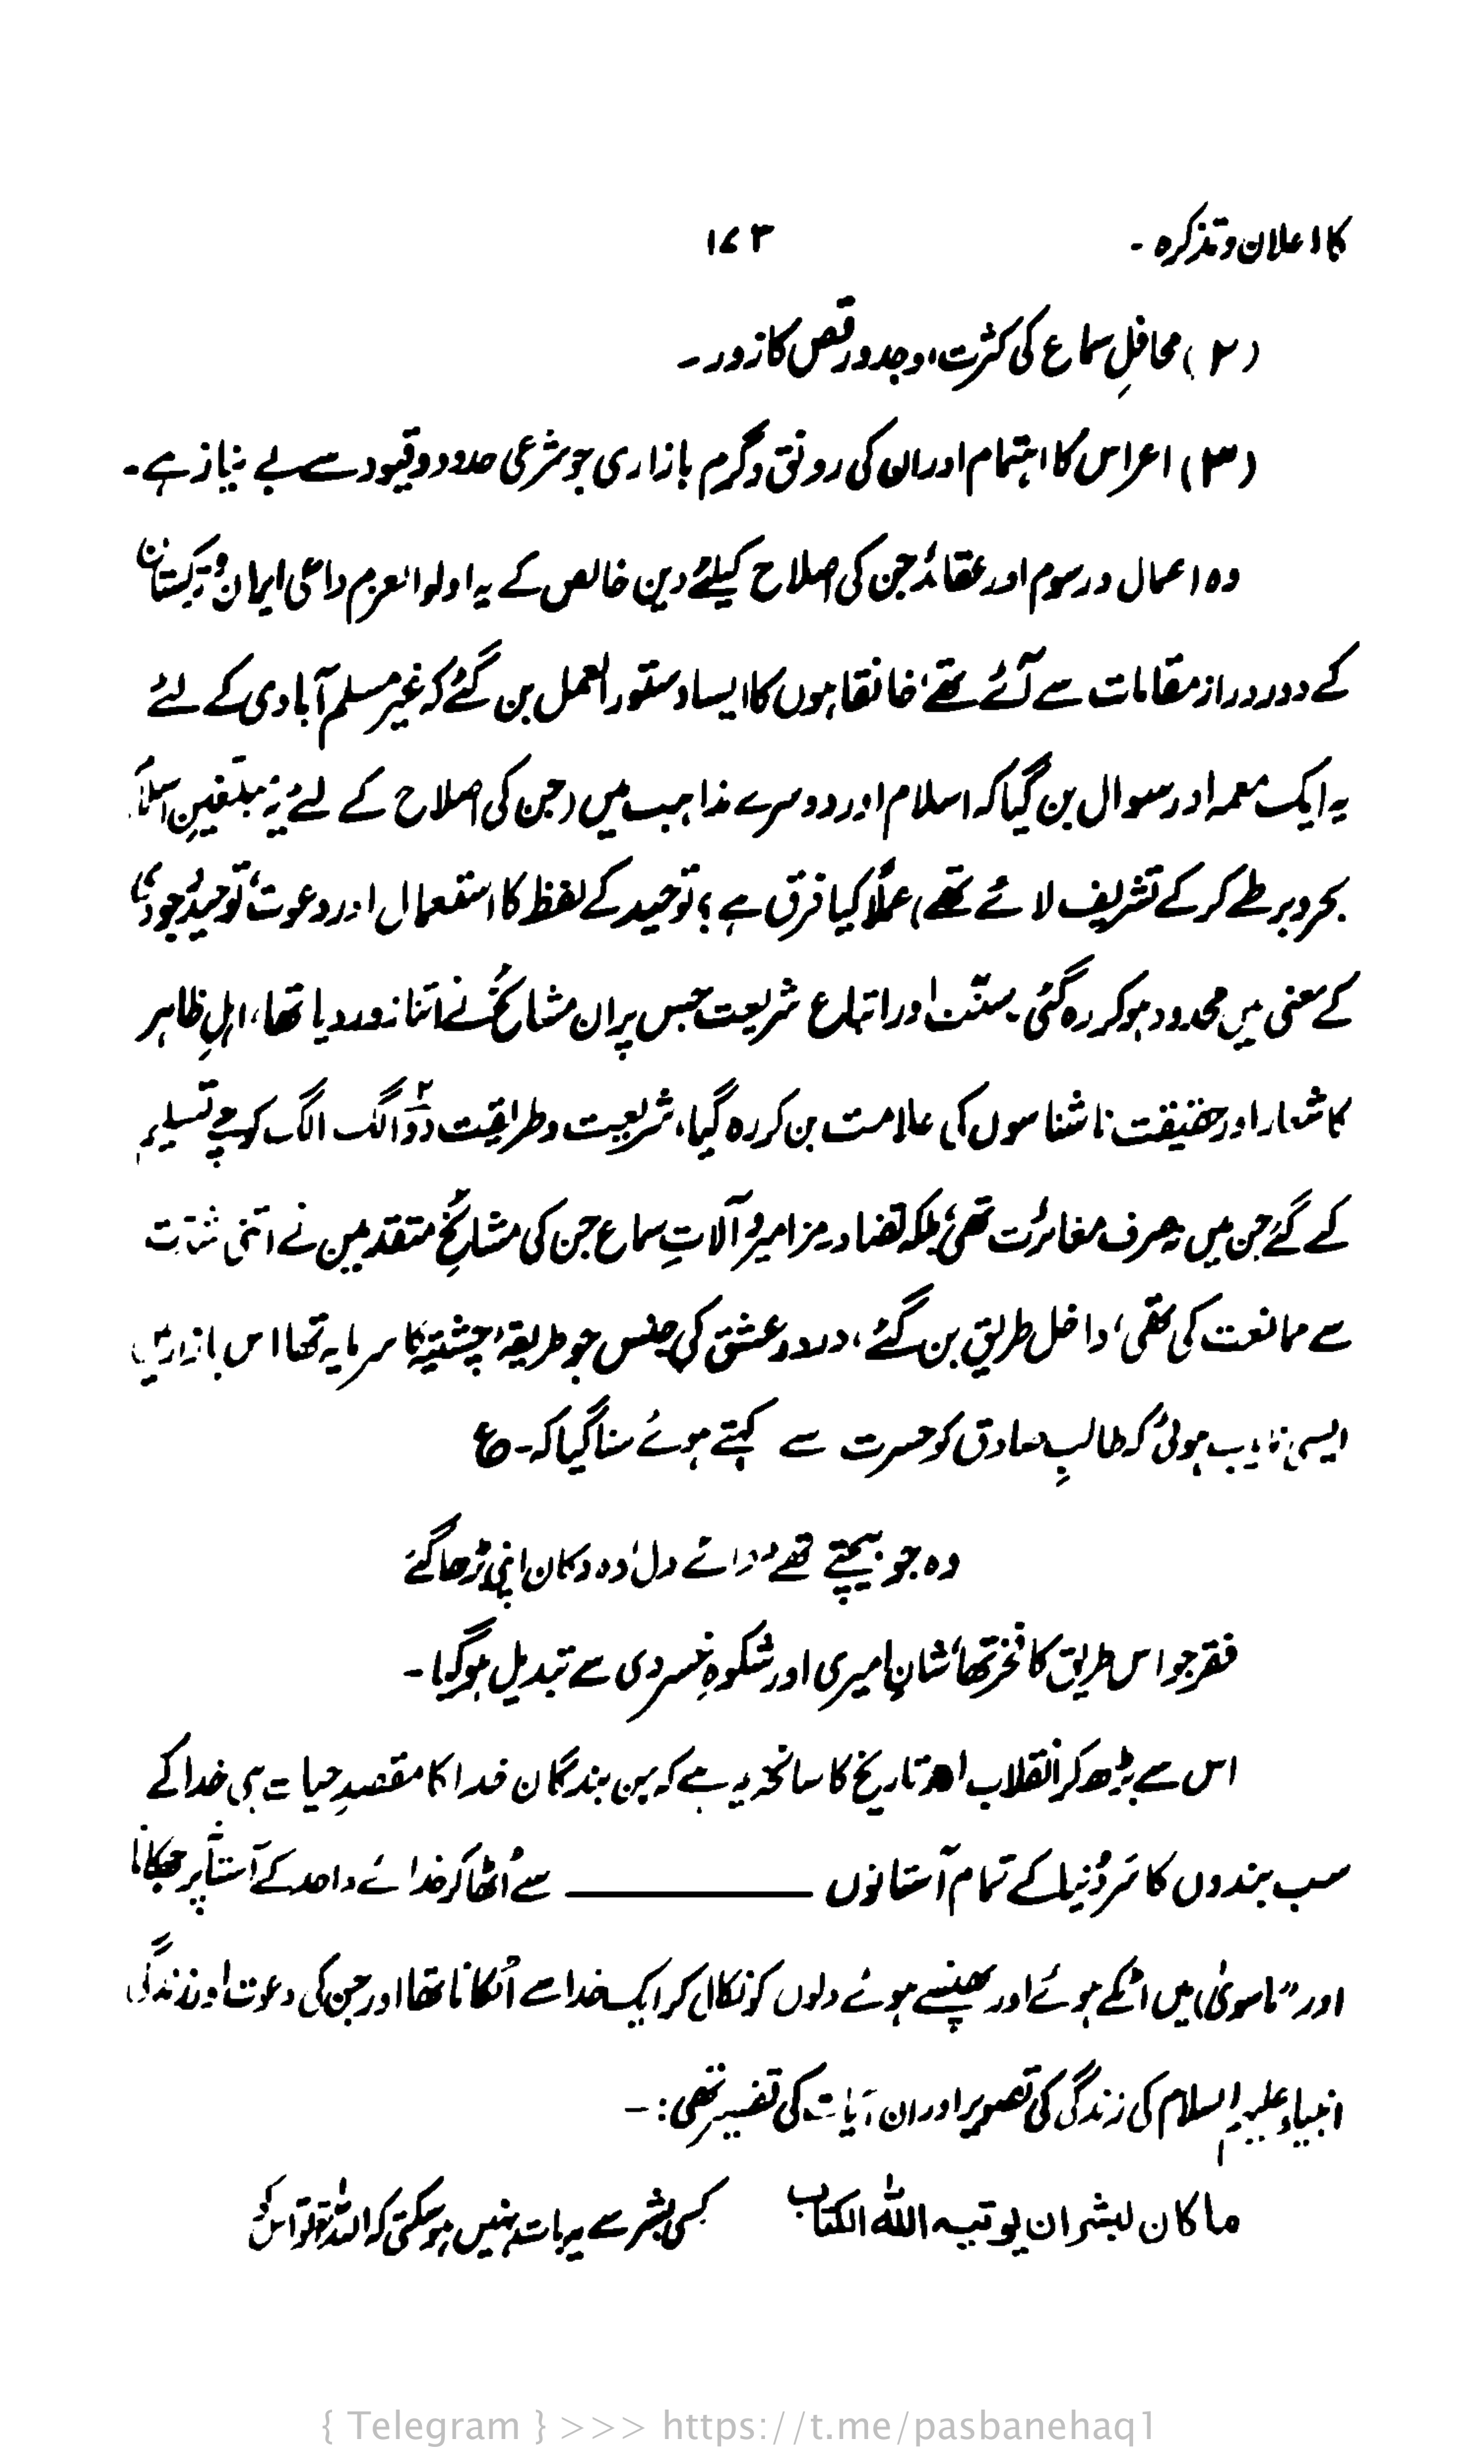 کا اعلان و تذکرہ ۔
۱۷۳
(۲) محافلِ سماع کی کثرت، وجد و رقص کا زور ۔
(۳) اعراس کا اہتمام اور ان کی رونق و گرم بازاری جو شرعی حدود و قیود سے بے نیاز ہے ۔
وہ اعمال و رسوم اور عقائد جن کی اصلاح کیلئے دین خالص کے یہ اولوالعزم داعی ایران و ترکستان
کے دور دراز مقامات سے آئے تھے، خانقاہوں کا ایسا دستور العمل بن گئے کہ غیر مسلم آبادی کے لئے
یہ ایک معمہ اور سوال بن گیا کہ اسلام اور دوسرے مذاہب میں (جن کی اصلاح کے لئے یہ مبلغینِ اسلام
بحر و بر طے کر کے تشریف لائے تھے) عملاً کیا فرق ہے؟ توحید کے لفظ کا استعمال اور دعوت، توحیدِ وجودی
کے معنی میں محدود ہو کر رہ گئی۔ سنّت اور اتباع شریعت جس پر ان مشائخ نے اتنا زور دیا تھا، اہلِ ظاہر
کا شعار اور حقیقت ناشناسوں کی علامت بن کر رہ گیا، شریعت و طریقت دو۲ الگ الگ کوچے تسلیم
کے گئے جن میں نہ صرف مغائرت تھی، بلکہ تضاد۔ مزامیر و آلاتِ سماع جن کی مشائخِ متقدمین نے اتنی شدت
سے ممانعت کی تھی، داخل طریق بن گئے، درد و عشق کی جنس جو طریقہ چشتیہ کا سرمایہ تھا اس بازار میں
ایسی نایاب ہوئی کہ طالبِ صادق کو حسرت سے کہتے ہوئے سنا گیا کہ۔ ع
وہ جو بیچتے تھے دوائے دل، وہ دکان اپنی بڑھا گئے
فقر جو اس طریق کا فخر تھا، شانِ امیری اور شکوہِ خسروی سے تبدیل ہو گیا ۔
اس سے بڑھ کر انقلاب اور تاریخ کا سانحہ یہ ہے کہ جن بندگان خدا کا مقصدِ حیات ہی خدا کے
سب بندوں کا سَر دُنیا کے تمام آستانوں ــــــــــ سے اُٹھا کر خدائے واحد کے آستاں پر جھکانا
اور "ماسویٰ" میں اٹکے ہوئے اور پھنسے ہوئے دلوں کو نکال کر ایک خدا سے اٹکانا تھا اور جن کی دعوت اور زندگی
انبیاء علیہم السلام کی زندگی کی تصویر اور ان آیات کی تفسیر تھی :۔
ما کان لبشر ان یوتیہ اللہ الکتاب
کسی بشر سے یہ بات نہیں ہو سکتی کہ اللہ تو اس کو
{ Telegram } >>> https://t.me/pasbanehaq1